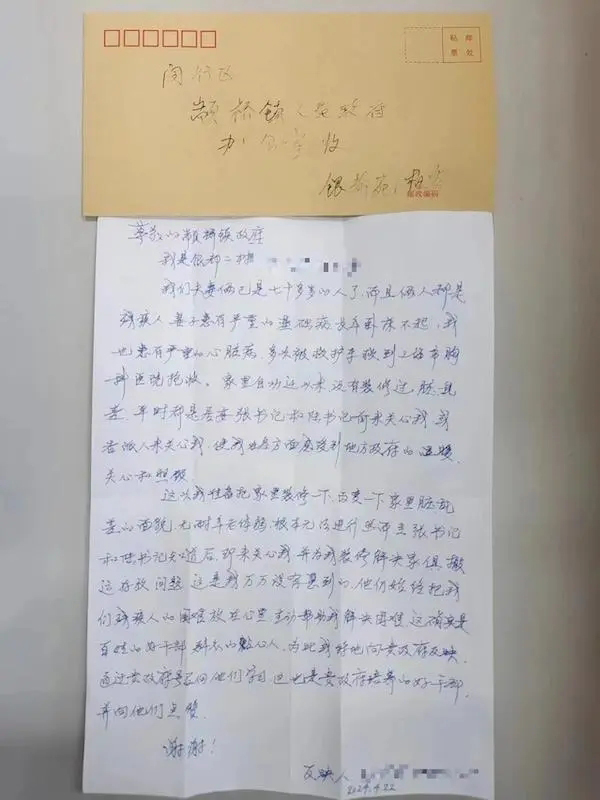 贴邮
票处
闵行区
颛桥镇人民政府
办公室收
银都苑
邮政编码
尊敬的颛桥镇政府
我是银都二村
我们夫妻俩已是七十多岁的人了,而且俩人都是
残疾人 妻子患有严重的基础病长年卧床不起,我
也患有严重的心脏病,多次被救护车救到上海市胸
科医院抢救。家里自动迁以来,没有装修过,脏、乱
差,平时都是居委张书记和陆书记前来关心我,或
者派人来关心我,使我方方面面感受到地方政府的温暖,
关心和照顾。
这次我准备把家里装修一下,改变一下家里脏乱
差的面貌,无耐年老体弱,根本无法进行 然而当张书记
和陆书记知道后,即来关心我 并为我装修解决家俱,搬
运存放问题,这是我万万没有想到的,他们始终把我
们残疾人的困难放在心里 主动帮助我解决困难,这确实是
百姓的好干部 群众的贴心人,为此我特地向贵政府反映,
通过贵政府号召向他们学习,这也是贵政府培养的好干部,
并向他们点赞。
谢谢!
反映人
2024.4.22